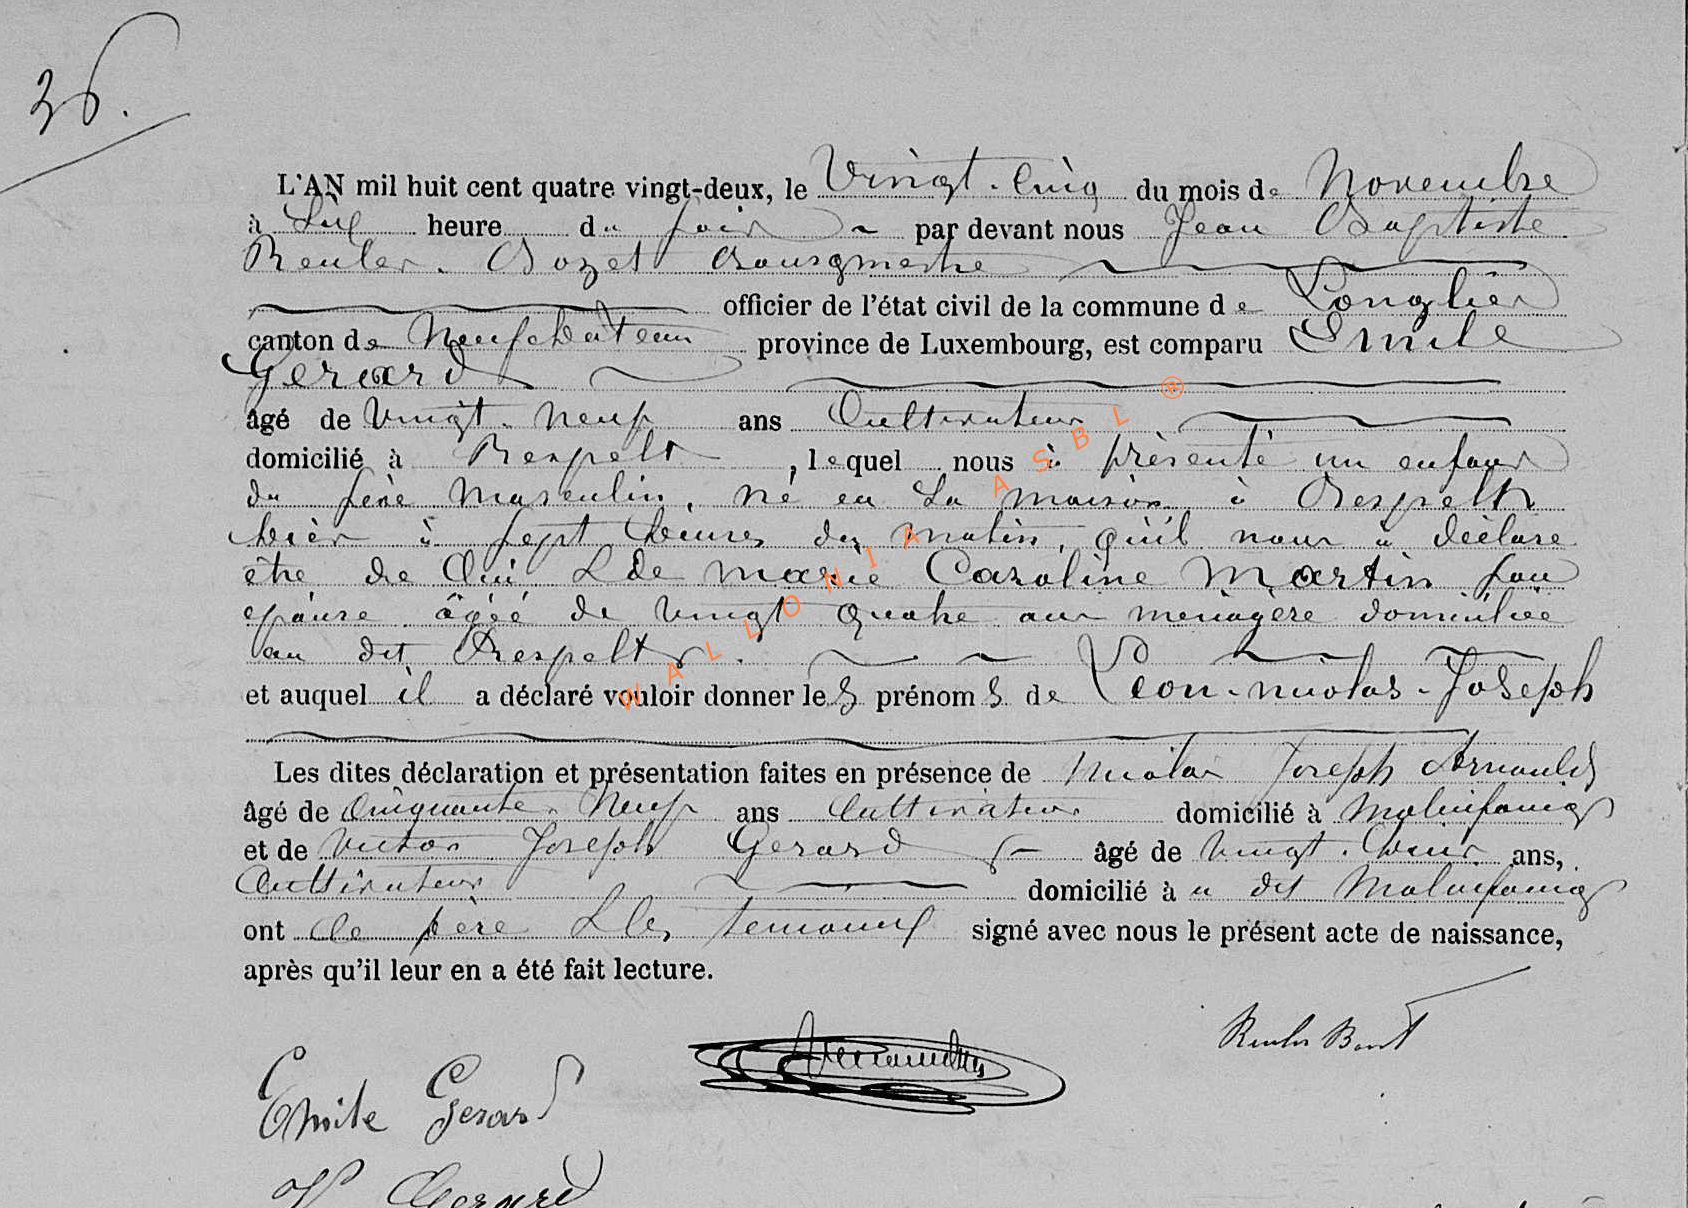 36.
L'AN mil huit cent quatre vingt-deux, le Vingt-Cinq du mois de Novembre
à Six heure du soir par devant nous Jean Baptiste
Reuler. Bozet Bourgmestre
officier de l'état civil de la commune de Longlier
canton de Neufchâteau province de Luxembourg, est comparu Emile
Gerard
âgé de vingt-neuf ans Cultivateur
domicilié à Respelt, lequel nous à présenté un enfant
du sexe masculin, né en Sa maison à Respelt
hièr à sept heures du matin, qu'il nous a déclaré
être de lui & de marie Caroline Martin son
épouse âgéé de vingt quatre ans menagère domiciliée
au dit Respelt
et auquel il a déclaré vouloir donner les prénoms de Léon-nicolas-Joseph
Les dites déclaration et présentation faites en présence de Nicolas Joseph Arnould
âgé de Cinquante-Neuf ans Cultivateur domicilié à Molinfaing
et de Victor Joseph Gerard âgé de vingt-Deux ans,
Cultivateur domicilié à u dit Molinfaing
ont le père & les temoins signé avec nous le présent acte de naissance,
après qu'il leur en a été fait lecture.
Reuler Bozet
Emile Gerard
V Gerard
WALLONIA ASBL ®